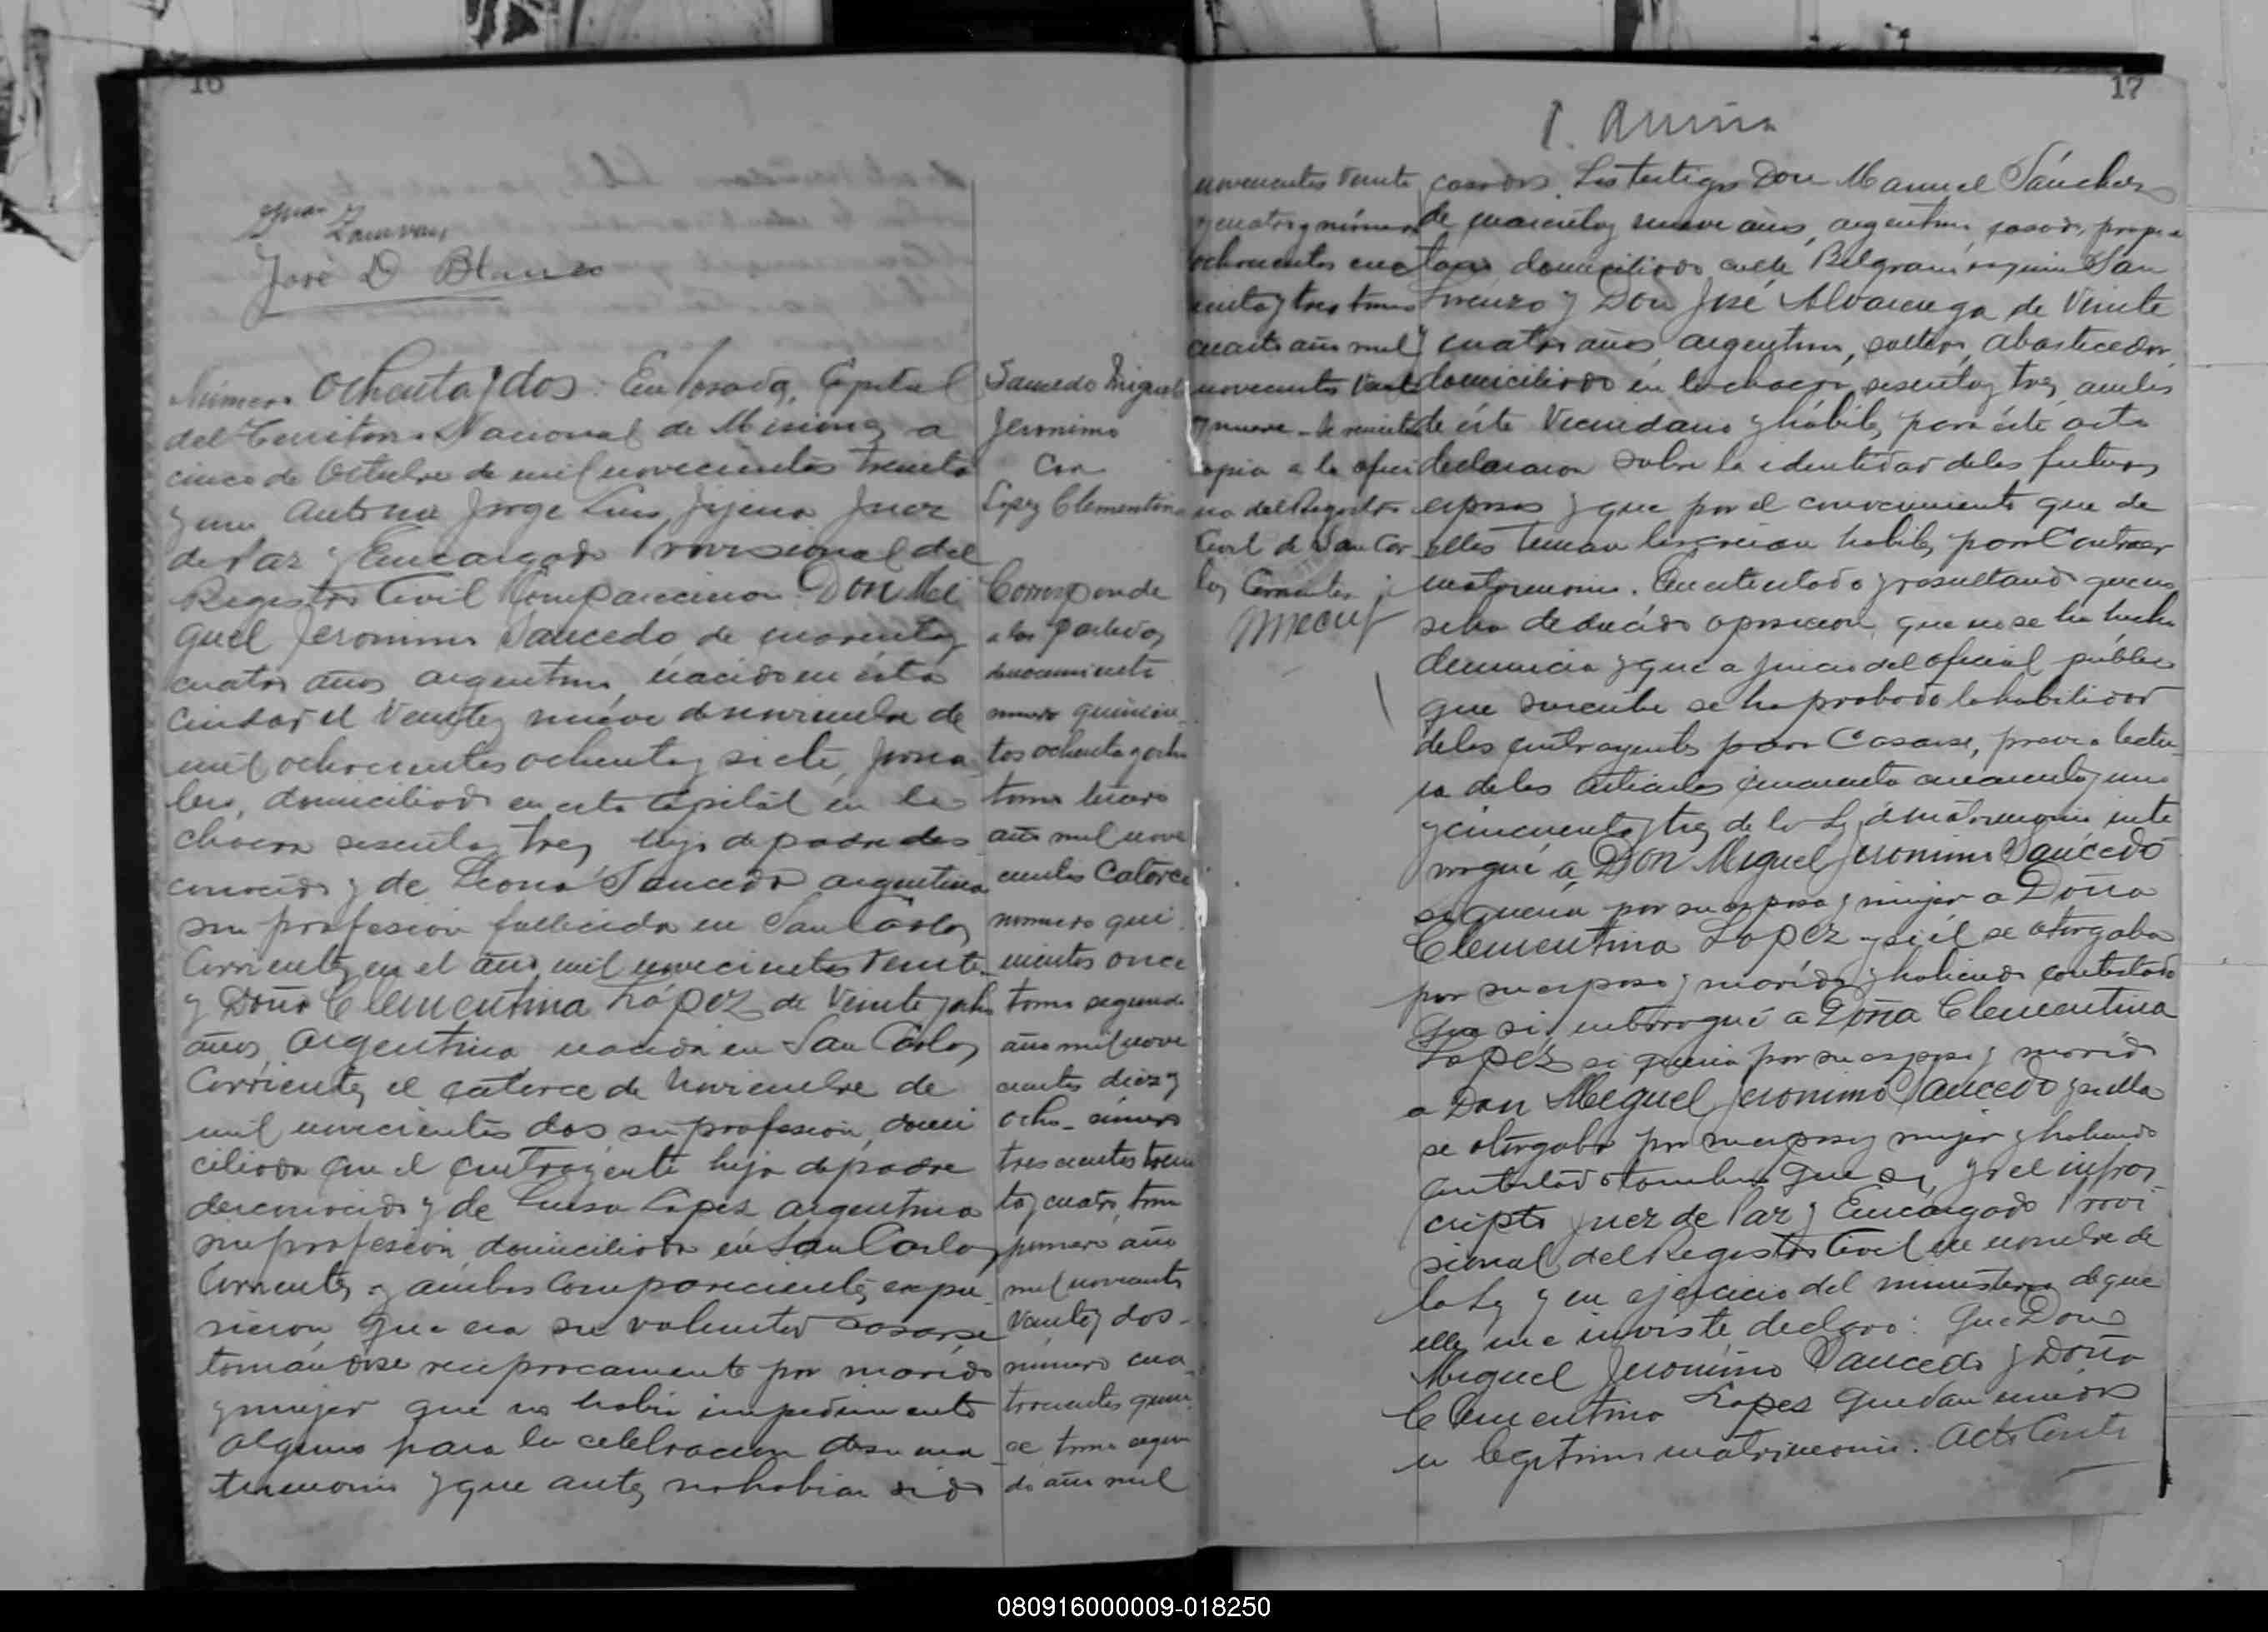 16
José D Blanco
Número Ochenta y dos: En Posadas, Capital
del Territorio Nacional de Misiones a
cinco de Octubre de mil novecientos treinta
y uno ante mi Jorge Luis Jijena Juez
de Paz y Encargado Provisional del
Registro Civil Comparecieron: Don Mi
guel Jeronimo Saucedo de cuarenta y
cuatro años, argentino, nacido en esta
ciudad el veinte y nueve de noviembre de
mil ochocientos ochenta y siete, jorna
lero, domiciliado en esta Capital en la
chacra sesenta y tres hijo de padre des
conocido y de Leona Saucedo argentina
sin profesion fallecida en San Carlos
Corrientes en el año mil novecientos veinte
y Doña Clementina López de veinte y ocho
años, Argentina nacida en San Carlos
Corrientes el catorce de Noviembre de
mil novecientos dos sin profesion, domi
ciliada con el contrayente hija de padre
desconocido y de Luisa Lopez argentina
sin profesion, domiciliada en San Carlos
Corrientes y ambos comparecientes expu
sieron que era su voluntad casarse
tomándose reciprocamente por marido
y mujer que no habia impedimento
alguno para la celebracion de su ma
trimonio y que antes no habian sido
Saucedo Miguel
Jeronimo
Con
Lopez Clementina
Corresponde
a las partidas
de nacimiento
número quinien
tos ochenta y ocho
tomo tercero
año mil nove
cientos catorce
número qui
nientos once
tomo segundo
año mil nove
cientos diez y
ocho número
trescientos trein
ta y cuatro, tomo
primero año
mil novecientos
veinte y dos
número cua
trocientos quin
ce tomo segun
do año mil
17
novecientos veinte
y cuatro y número
ochocientos cua
renta y tres tomo
cuarto año mil
novecientos veinte
y nueve. Se remite
copia a la ofici
na del Registro
Civil de San Car
los Corrientes
casados. Los testigos Don Manuel Sánchez
de cuarenta y nueve años, argentino, casado, propie
tario domiciliado calle Belgrano esquina San
Lorenzo y Don José Alvarenga de veinte
y cuatro años, argentino, soltero, abastecedor,
domiciliado en la chacra sesenta y tres, ambos
de éste Vecindario y hábiles para éste acto
declararon sobre la identidad de los futuros
esposos y que por el conocimiento que de
ellos tenian los creian habiles para Contraer
matrimonio. En este estado y resultando que no
se ha deducido oposicion, que no se ha hecho
denuncia y que a juicio del oficial público
que suscribe se ha probado la habilidad
de los contrayentes para Casarse, previa lectu
ra de los articulos cincuenta cincuenta y uno
y cincuenta y tres de la Ley de matrimonio inte
rrogué á Don Miguel Jeronimo Saucedo
si queria por su esposa y mujer a Doña
Clementina Lopez y si él se otorgaba
por su esposo y marido y habiendo contestado
que si, interrogué a Doña Clementina
Lopez si queria por su esposo y marido
a Don Miguel Jeronimo Saucedo y si ella
se otorgaba por su esposa y mujer y habiendo
contestado tambien que si, yo el infras
cripto Juez de Paz y Encargado Provi
sional del Registro Civil en nombre de
la Ley y en ejercicio del ministerio de que
ella me inviste, declaro: Que Don
Miguel Jeronimo Saucedo y Doña
Clementina Lopez quedan unidos
en legitimo matrimonio. Acto Conti
080916000009-018250